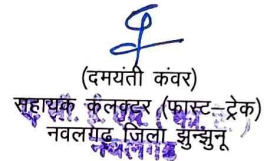 (दमयंती कंवर)
सहायक कलक्टर (फास्ट-ट्रेक)
नवलगढ़ जिला झुन्झुनू
नवलगढ़